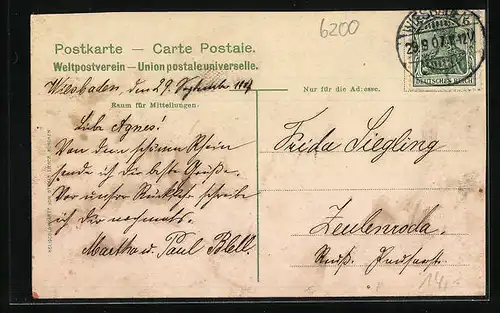 6200
Postkarte – Carte Postale.
Weltpostverein – Union postale universelle.
29.9.07.
DEUTSCHES REICH
Wiesbaden, den 29. September 1907
Raum für Mitteilungen.
Nur für die Adresse.
Liebe Agnes!
Von dem schönen Rhein
sende ich die beste Grüße.
Vor unsrer Rückkehr schreibe
ich Dir nochmals.
Martha u. Paul Blell.
Frida Siegling
Zeulenroda.